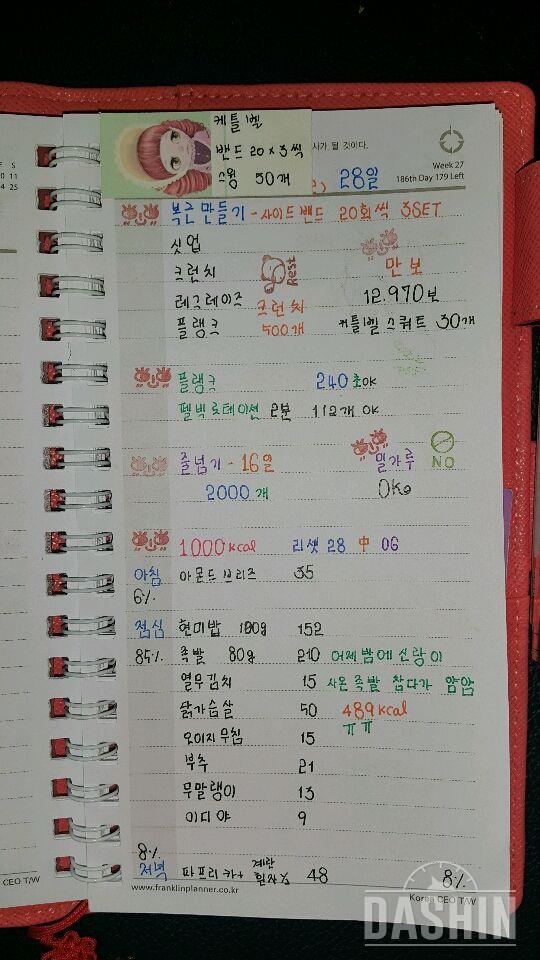 케틀벨
밴드 20 x 3씩
스윙 50개
사가 될 것이다.
Week 27
186th Day 179 Left
28일
복근만들기 - 사이드밴드 20회씩 3SET
싯업
크런치
Rest
만보
레그레이즈 크런치 12.970보
플랭크 500개 케틀벨스쿼트 30개
플랭크 240초OK
펠빅로테이션 2분 112개 OK
줄넘기 - 16일 밀가루 NO
2000개 OK
1000kcal 리셋 28 中 06
아침 아몬드브리즈 35
6%
점심 현미밥 100g 152
85% 족발 80g 210 어제밤에 신랑이
열무김치 15 사온 족발 참다가 얌얌
닭가슴살 50 489kcal
오이지무침 15 ㅠㅠ
부추 21
무말랭이 13
이디야 9
8%
저녁 파프리카+ 계란 흰자 48 8%
CEO T/W
www.franklinplanner.co.kr
Korea CEO T/W
DASHIN